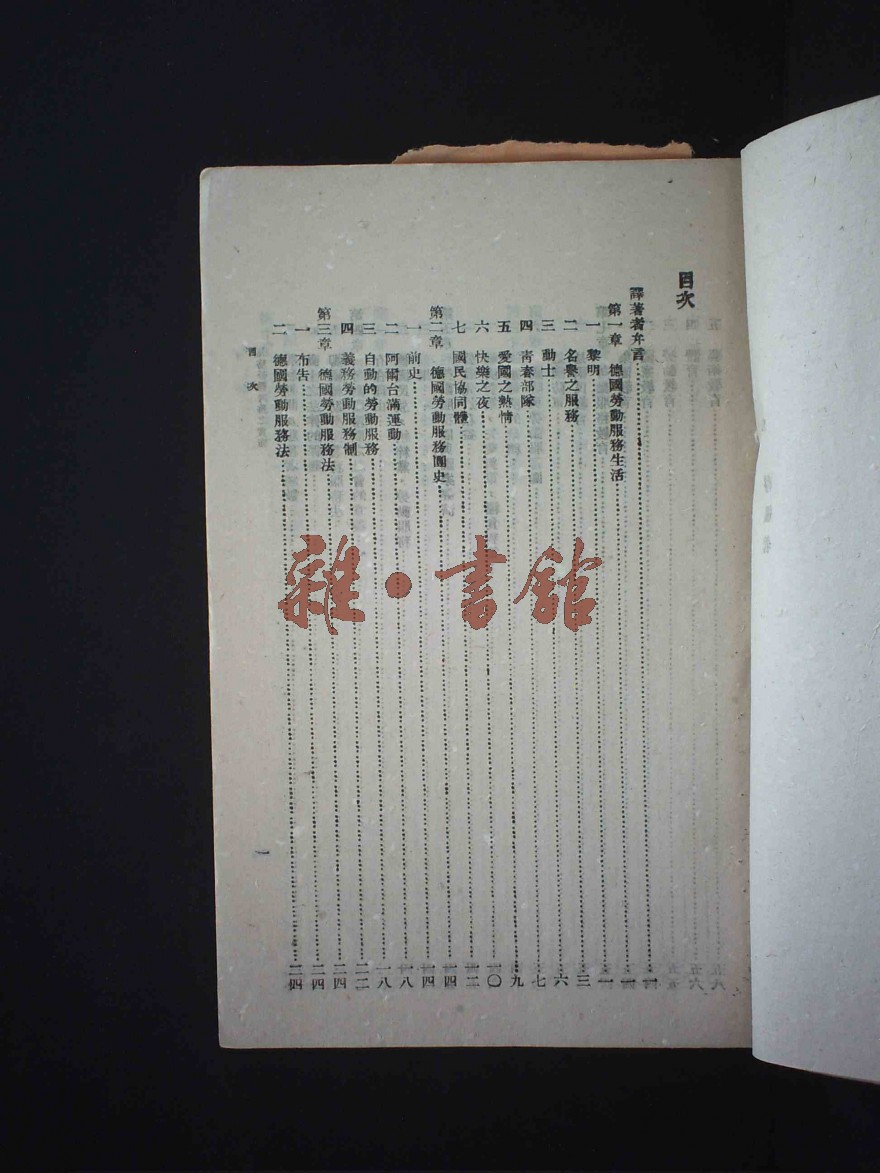 目次
譯著者弁言……………………一
第一章 德國勞動服務生活……………………一
一 黎明……………………一
二 名譽之服務……………………三
三 動士……………………六
四 靑春部隊……………………七
五 愛國之熱情……………………九
六 快樂之夜……………………一〇
七 國民協同體……………………一二
第二章 德國勞動服務團史……………………一四
一 前史……………………一四
二 阿爾台滿運動……………………一八
三 自動的勞動服務……………………一八
四 義務勞動服務制……………………二二
第三章 德國勞動服務法……………………二四
一 布告……………………二四
二 德國勞動服務法……………………二四
目次
一
雜·書館